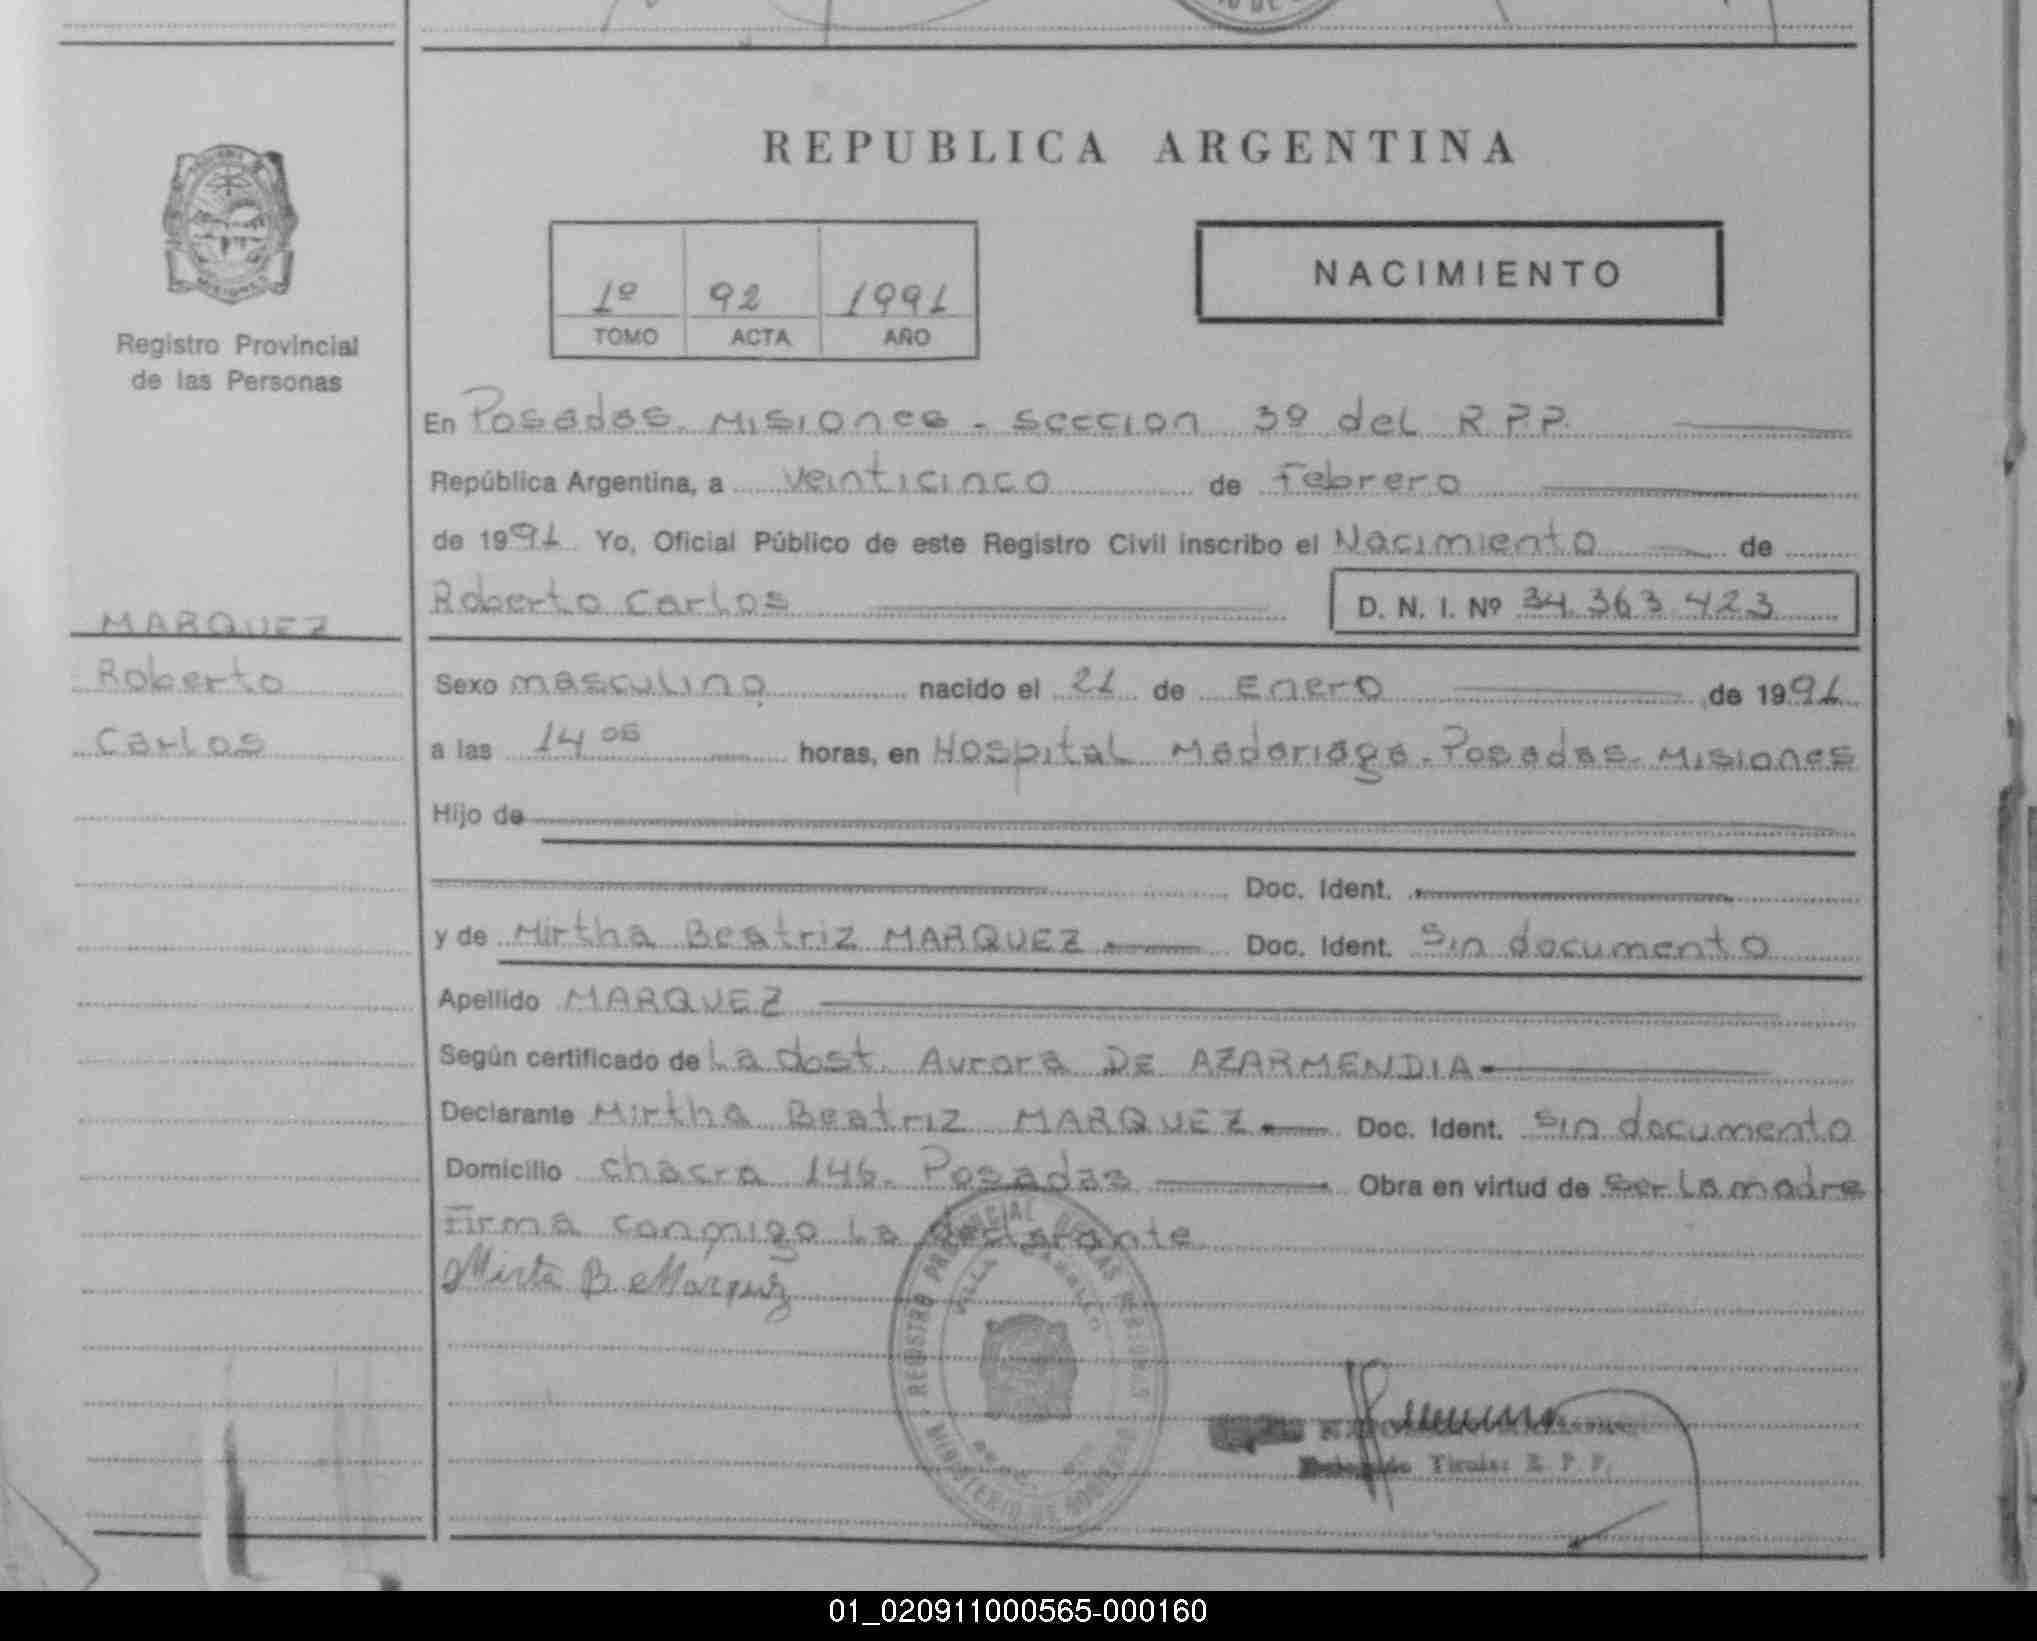 REPUBLICA ARGENTINA
1º 92 1991
TOMO ACTA AÑO
NACIMIENTO
Registro Provincial
de las Personas
MARQUEZ
Roberto
Carlos
En Posadas. Misiones - seccion 3º del R.P.P.
República Argentina, a veinticinco de Febrero
de 1991 Yo, Oficial Público de este Registro Civil inscribo el Nacimiento de
Roberto Carlos D. N. I. Nº 34.363.423
Sexo masculino nacido el 21 de Enero de 1991
a las 14 05 horas, en Hospital Madariaga. Posadas. Misiones
Hijo de
Doc. Ident.
y de Mirtha Beatriz MARQUEZ Doc. Ident. Sin documento
Apellido MARQUEZ
Según certificado de La dost. Aurora DE AZARMENDIA
Declarante Mirtha Beatriz MARQUEZ Doc. Ident. Sin documento
Domicilio chacra 146. Posadas Obra en virtud de ser La madre
Firma conmigo La declarante
Mirta B. Marquez
REGISTRO PROVINCIAL DE LAS PERSONAS
VILLA
MINISTERIO DE GOBIERNO
Titular R. P. P.
01_020911000565-000160